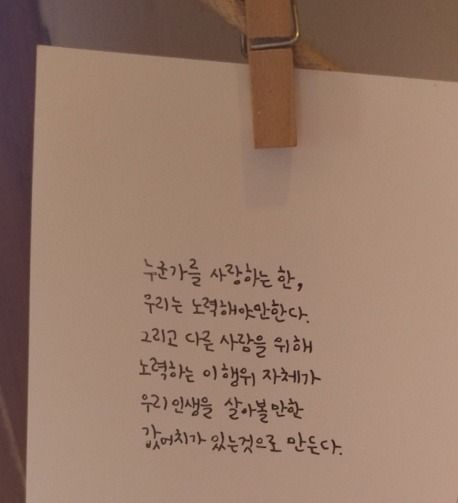 누군가를 사랑하는 한,
우리는 노력해야만한다.
그리고 다른 사람을 위해
노력하는 이 행위 자체가
우리 인생을 살아볼만한
값어치가 있는것으로 만든다.